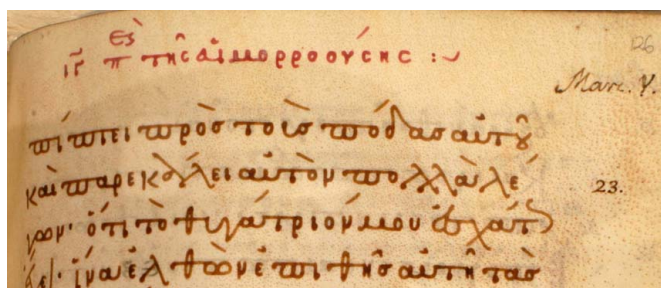 126
ιγ π τῆς αἱμορροούσης :~
Marc. V.
πίπτει πρὸς τοὺς πόδας αὐτοῦ
καὶ παρεκάλει αὐτὸν πολλὰ λέ
23.
γων· ὅτι τὸ θυγάτριόν μου ἐσχάτ
ἔχει· ἵνα ἐλθὼν ἐπιθῇς αὐτῇ τὰς